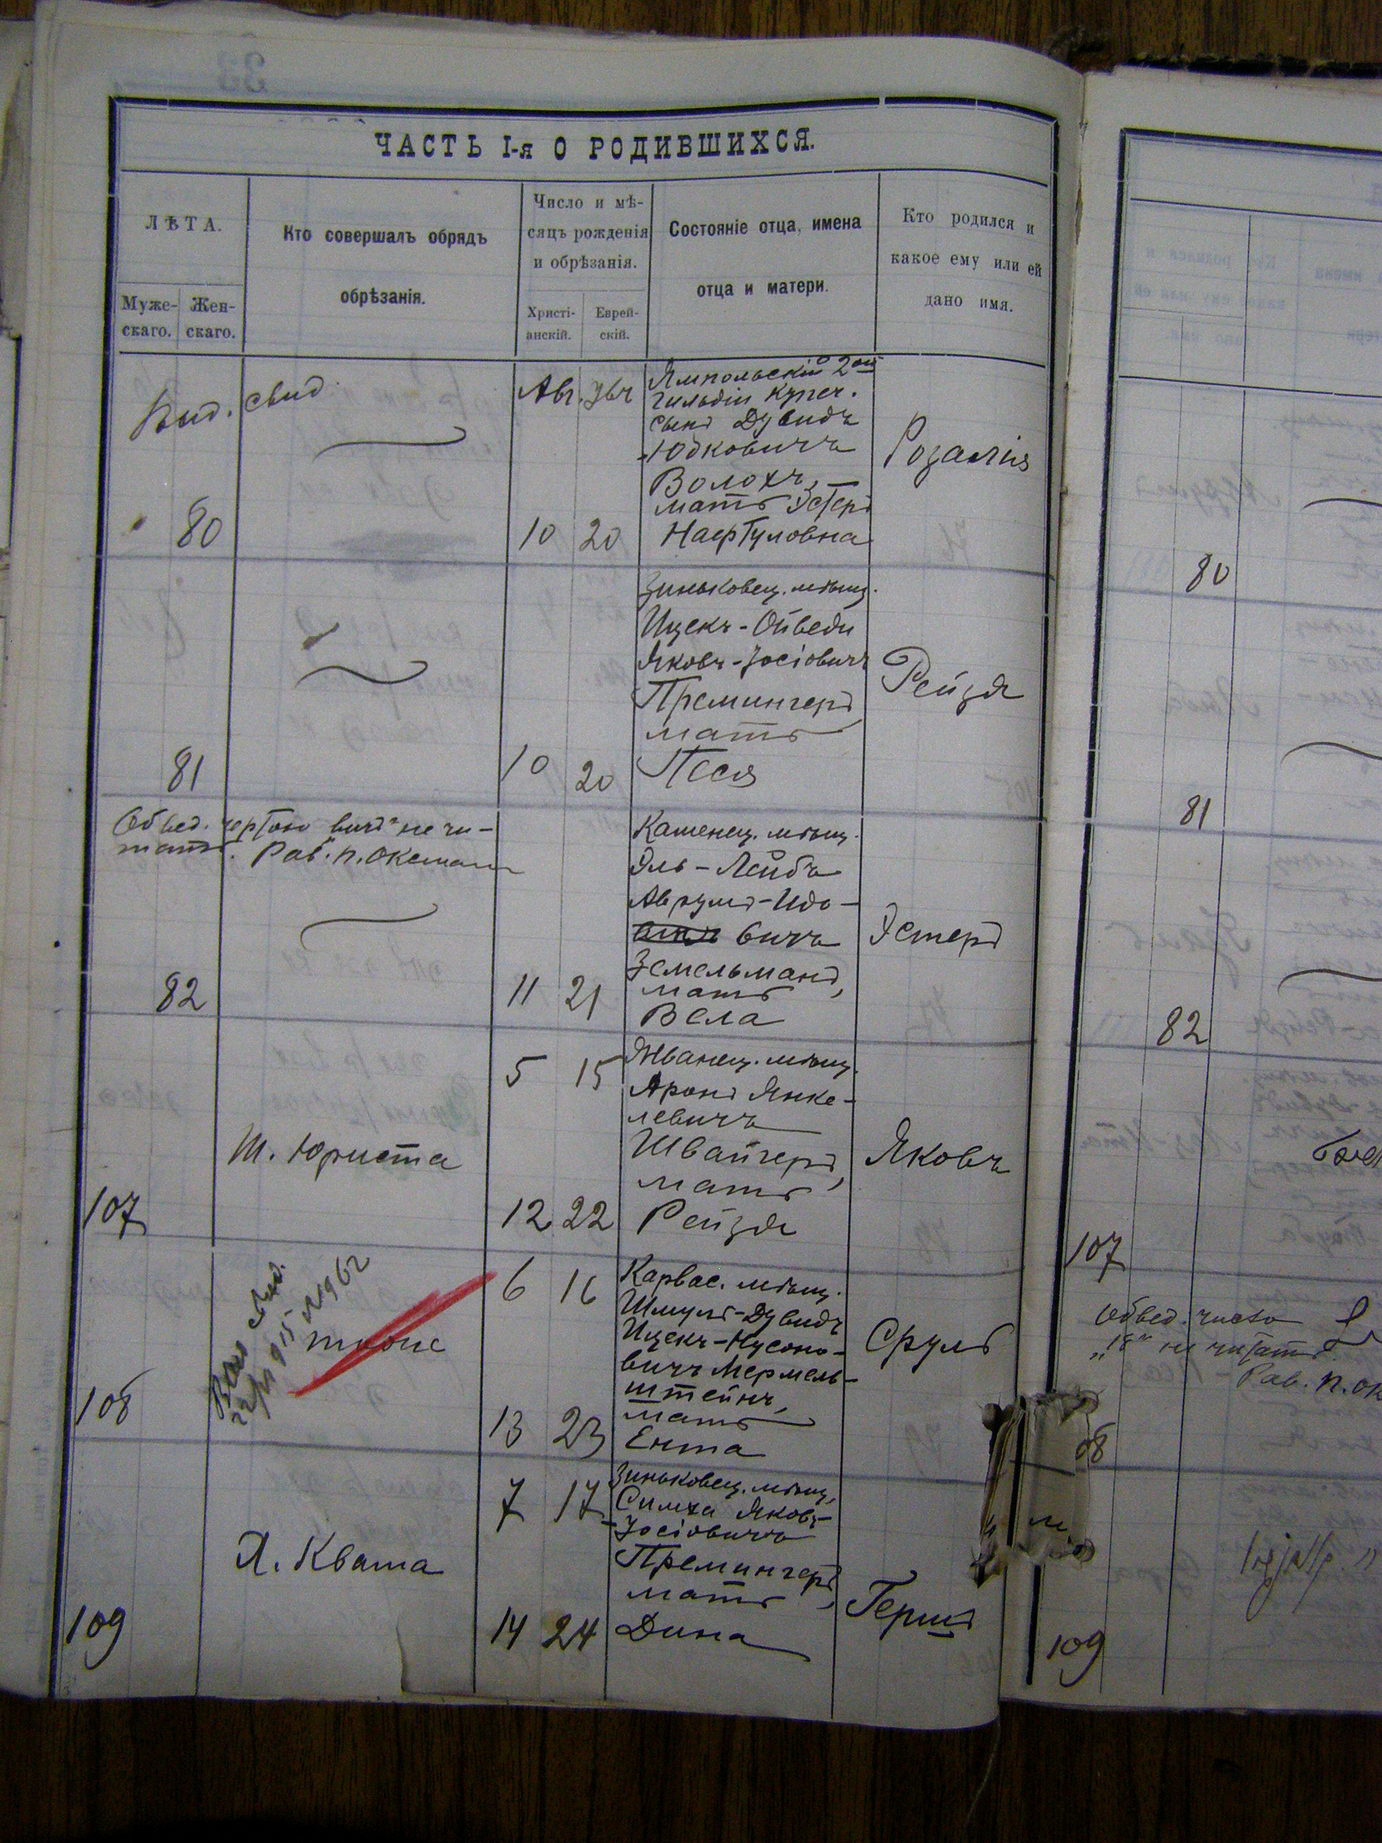 ЧАСТЬ I-я О РОДИВШИХСЯ.
ЛѢТА.
Муже-
скаго.
Жен-
скаго.
Кто совершалъ обрядъ
обрѣзанія.
Число и мѣ-
сяцъ рожденія
и обрѣзанія.
Христі-
анскій.
Еврей-
скій.
Состояніе отца, имена
отца и матери.
Кто родился и
какое ему или ей
дано имя.
Выд. свид.
80
Авг.
10 20
Ямпольскій 2ой
гильдіи купеч.
сынъ Дувидъ
Юдковичъ
Волохъ,
мать Эстеръ
Нафтуловна
Розалія
81
10 20
Зиньковец. мѣщ.
Ицекъ-Ойведи
Яковъ-Іосіовичъ
Премингеръ,
мать
Песя
Рейзя
Обвед. чертою вичъ" не чи-
тать. Рав. П. Оксман
82
11 21
Каменец. мѣщ.
Эль-Лейбъ
Аврумъ-Идо-
вичъ
Земельманъ,
мать
Бела
Эстеръ
107
Ш. Юриста
5 15
12 22
Жванец. мѣщ.
Аронъ Янке-
левичъ
Швайгеръ,
мать
Рейзя
Яковъ
108
тоже
6 16
13 23
Карвас. мѣщ.
Шмуль-Дувидъ
Ицекъ-Нусоно-
вичъ Мермель-
штейнъ,
мать
Ента
Сруль
109
Х. Кваша
7 17
14 24
Зиньковец. мѣщ.
Симха Яковъ-
Іосіовичъ
Премингеръ,
мать
Дина
Гершъ
80
81
82
107
Обвед. чисто
"16" не читать.
Рав. П. Ок
08
109